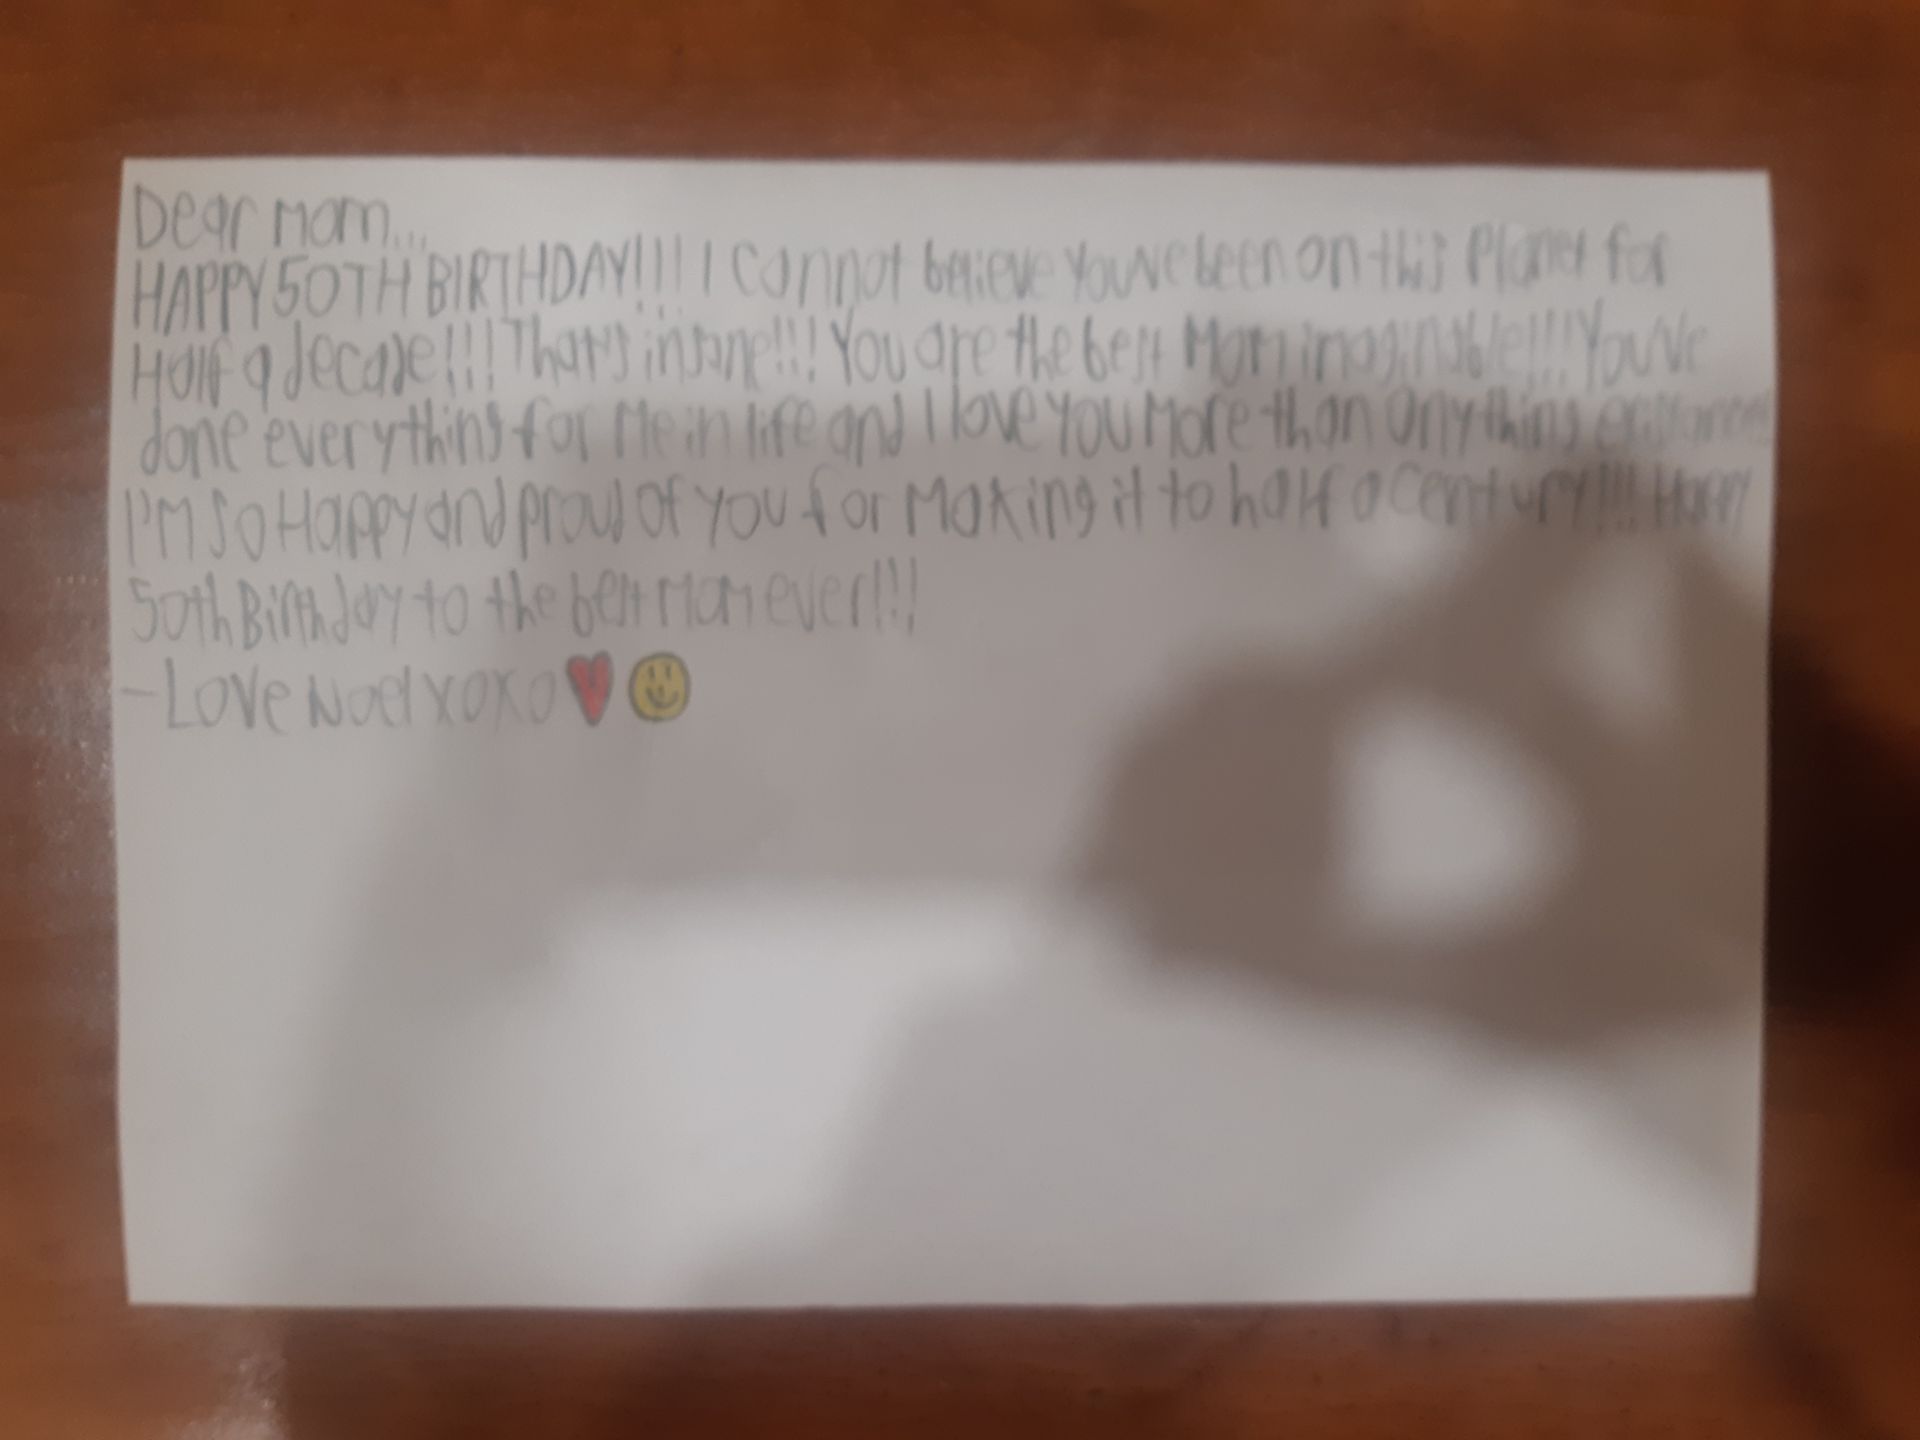 Dear Mom...
HAPPY 50TH BIRTHDAY!!! I cannot believe you've been on this Planet for
Half a decade!!! That's insane!!! You are the best Mom imaginable!!! You've
done everything for Me in life and I love you More than anything
I'M so Happy and proud of you for Making it to half a century!!! Happy
50th Birthday to the best Mom ever!!!
-Love Noel xoxo❤️🙂